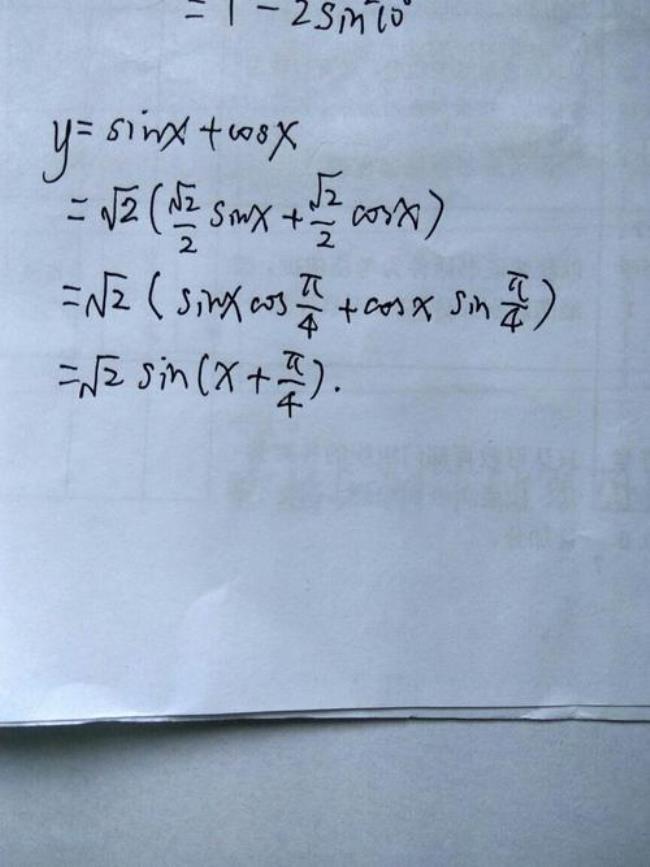 = 1 - 2sin²10°
y = sinx + cosx
= √2 ( √2/2 sinx + √2/2 cosx )
= √2 ( sinx cos π/4 + cosx sin π/4 )
= √2 sin(x + π/4).